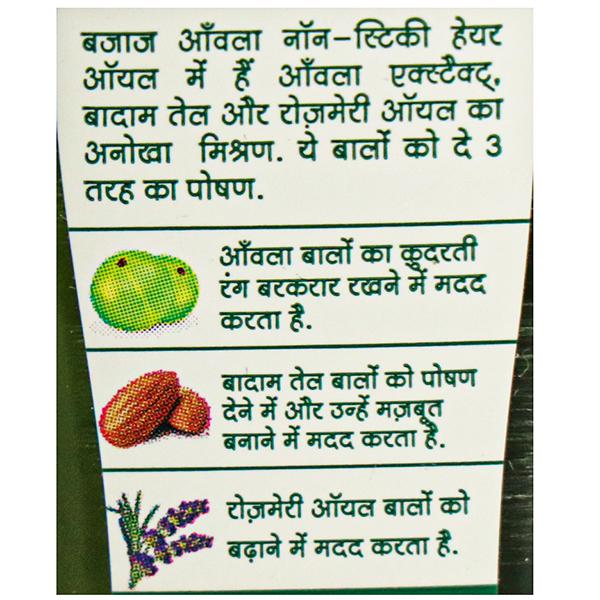 बजाज आँवला नॉन-स्टिकी हेयर
ऑयल में हैं आँवला एक्स्टैक्ट्,
बादाम तेल और रोज़मेरी ऑयल का
अनोखा मिश्रण. ये बालों को दे 3
तरह का पोषण.
आँवला बालों का कुदरती
रंग बरकरार रखने में मदद
करता है.
बादाम तेल बालों को पोषण
देने में और उन्हें मज़बूत
बनाने में मदद करता है.
रोज़मेरी ऑयल बालों को
बढ़ाने में मदद करता है.